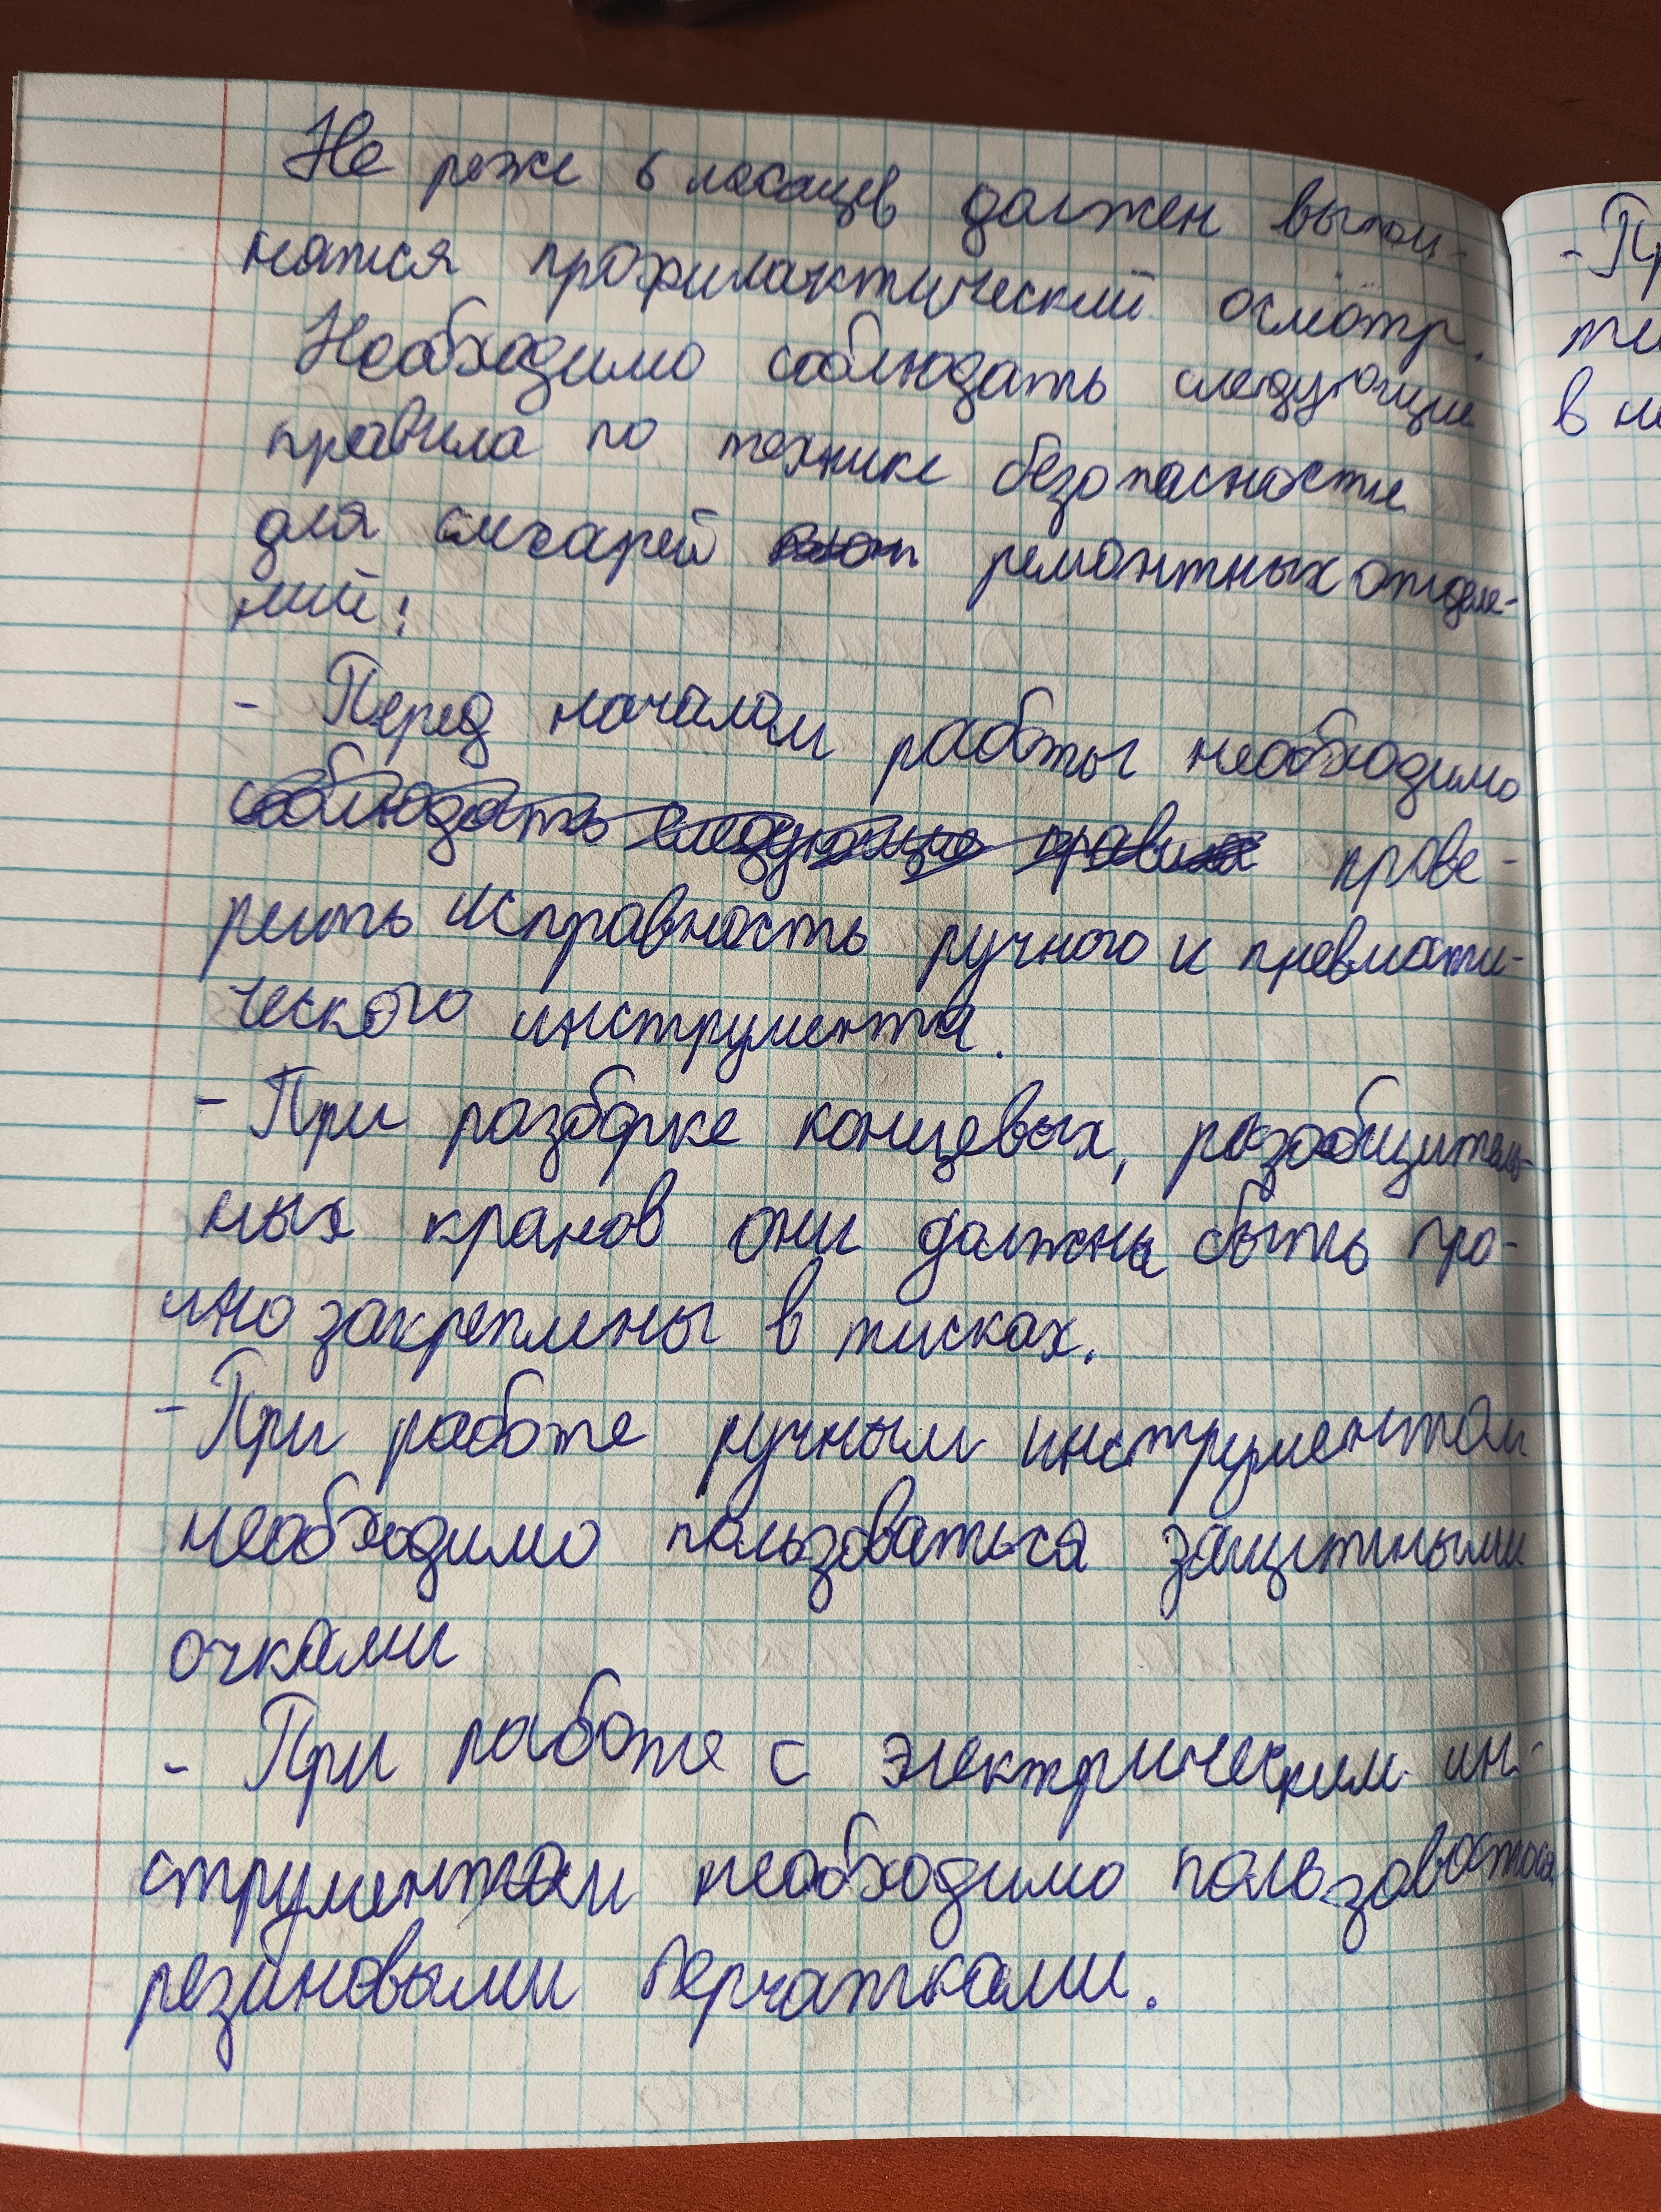 Не реже 6 месяцев должен выпол-
нятся профилактический осмотр.
Необходимо соблюдать следующие
правила по технике безопасности
для слесарей ремонтных отделе-
ний:
- Перед началом работы необходимо
соблюдать следующие правила прове-
рить исправность ручного и пневмати-
ческого инструмента.
- При разборке концевых, разобщитель-
ных кранов они должны быть про-
чно закреплены в тисках.
- При работе ручным инструментом
необходимо пользоваться защитными
очками
- При работе с электрическим ин-
струментом необходимо пользоватся
резиновыми перчатками.
- Пр
ти
в